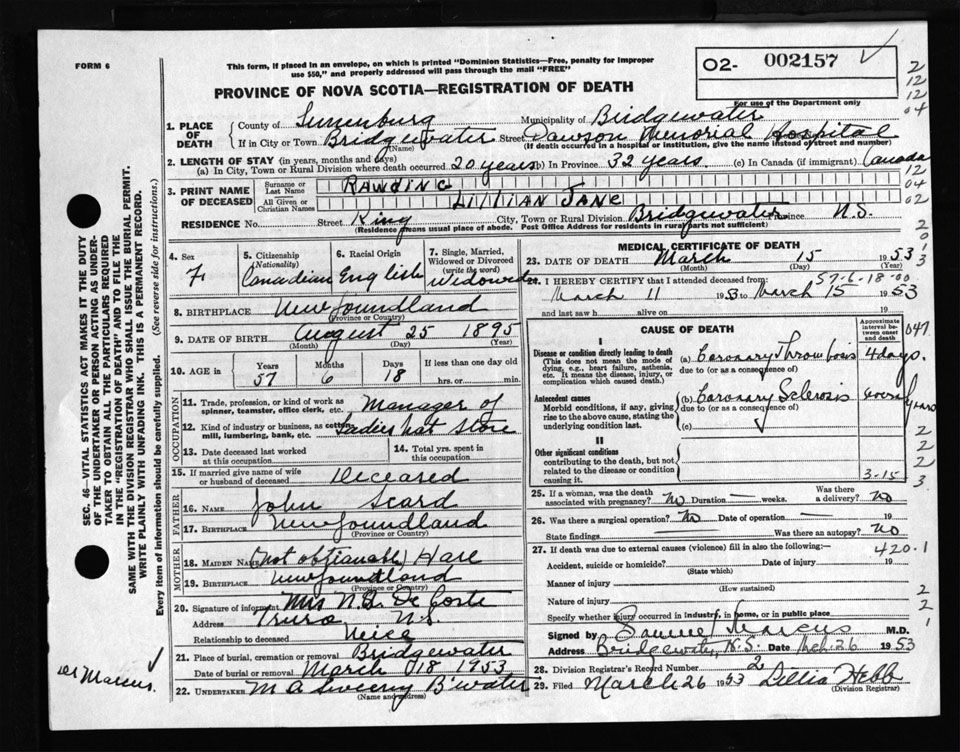 FORM 6
This form, if placed in an envelope, on which is printed "Dominion Statistics—Free, penalty for improper
use $50," and properly addressed will pass through the mail "FREE"
02- 002157
For use of the Department only
PROVINCE OF NOVA SCOTIA—REGISTRATION OF DEATH
1. PLACE OF DEATH
County of Lunenburg Municipality of Bridgewater
If in City or Town Bridgewater Street Dawson Memorial Hospital
(Name) (If death occurred in a hospital or institution, give the name instead of street and number)
2. LENGTH OF STAY (in years, months and days)
(a) In City, Town or Rural Division where death occurred 20 years (b) In Province 32 years (c) In Canada (if immigrant) Canada
3. PRINT NAME OF DECEASED
Surname or Last Name RAWDING
All Given or Christian Names LILLIAN JANE
RESIDENCE No. Street King City, Town or Rural Division Bridgewater Province N.S.
(Residence means usual place of abode. Post Office Address for residents in rural parts not sufficient)
4. Sex F
5. Citizenship (Nationality) Canadian
6. Racial Origin English
7. Single, Married, Widowed or Divorced (write the word) Widowed
8. BIRTHPLACE Newfoundland
(Province or Country)
9. DATE OF BIRTH August 25 1895
(Month) (Day) (Year)
10. AGE in Years 57 Months 6 Days 18 If less than one day old hrs. or min.
OCCUPATION
11. Trade, profession, or kind of work as spinner, teamster, office clerk, etc. Manager of
12. Kind of industry or business, as cotton mill, lumbering, bank, etc. Ladies Hat Store
13. Date deceased last worked at this occupation
14. Total yrs. spent in this occupation
15. If married give name of wife or husband of deceased Deceared
FATHER
16. NAME John Seard
17. BIRTHPLACE Newfoundland
(Province or Country)
MOTHER
18. MAIDEN NAME (not obtianable) Hare
19. BIRTHPLACE Newfoundland
(Province or Country)
20. Signature of informant Mrs N.L. De Coste
Address Truro N.S.
Relationship to deceased Neice
21. Place of burial, cremation or removal Bridgewater
Date of burial or removal March 18 1953
22. UNDERTAKER M A Sweeny B'water
(Name and address)
MEDICAL CERTIFICATE OF DEATH
23. DATE OF DEATH March 15 1953
(Month) (Day) (Year)
57-6-18-00
24. I HEREBY CERTIFY that I attended deceased from:
March 11 1953 to March 15 1953
and last saw h alive on 19
CAUSE OF DEATH
Approximate interval between onset and death
I
Disease or condition directly leading to death
(This does not mean the mode of dying, e.g., heart failure, asthenia, etc. It means the disease, injury, or complication which caused death.)
(a) Coronary Thrombosis 4 days.
due to (or as a consequence of)
Antecedent causes
Morbid conditions, if any, giving rise to the above cause, stating the underlying condition last.
(b) Coronary Sclerosis several years
due to (or as a consequence of)
(c)
II
Other significant conditions
contributing to the death, but not related to the disease or condition causing it.
3-15
25. If a woman, was the death associated with pregnancy? No Duration — weeks. Was there a delivery? No
26. Was there a surgical operation? No Date of operation — 19
State findings Was there an autopsy? No
27. If death was due to external causes (violence) fill in also the following:—
420.1
Accident, suicide or homicide? Date of injury 19
(State which)
Manner of injury
(How sustained)
Nature of injury
Specify whether injury occurred in industry, in home, or in public place
Signed by Samuel Marcus M.D.
Address Bridgewater, N.S. Date Mch. 26 1953
28. Division Registrar's Record Number 2
29. Filed March 26 1953 Lillia Hebb
(Division Registrar)
SEC. 46—VITAL STATISTICS ACT MAKES IT THE DUTY
OF THE UNDERTAKER OR PERSON ACTING AS UNDER-
TAKER TO OBTAIN ALL THE PARTICULARS REQUIRED
IN THE "REGISTRATION OF DEATH" AND TO FILE THE
SAME WITH THE DIVISION REGISTRAR WHO SHALL ISSUE THE BURIAL PERMIT.
WRITE PLAINLY WITH UNFADING INK. THIS IS A PERMANENT RECORD.
Every item of information should be carefully supplied. (See reverse side for instructions.)
Dr Marcus.
2
12
12
04
12
04
02
2
0
3
047
2
2
2
3
2
2
1